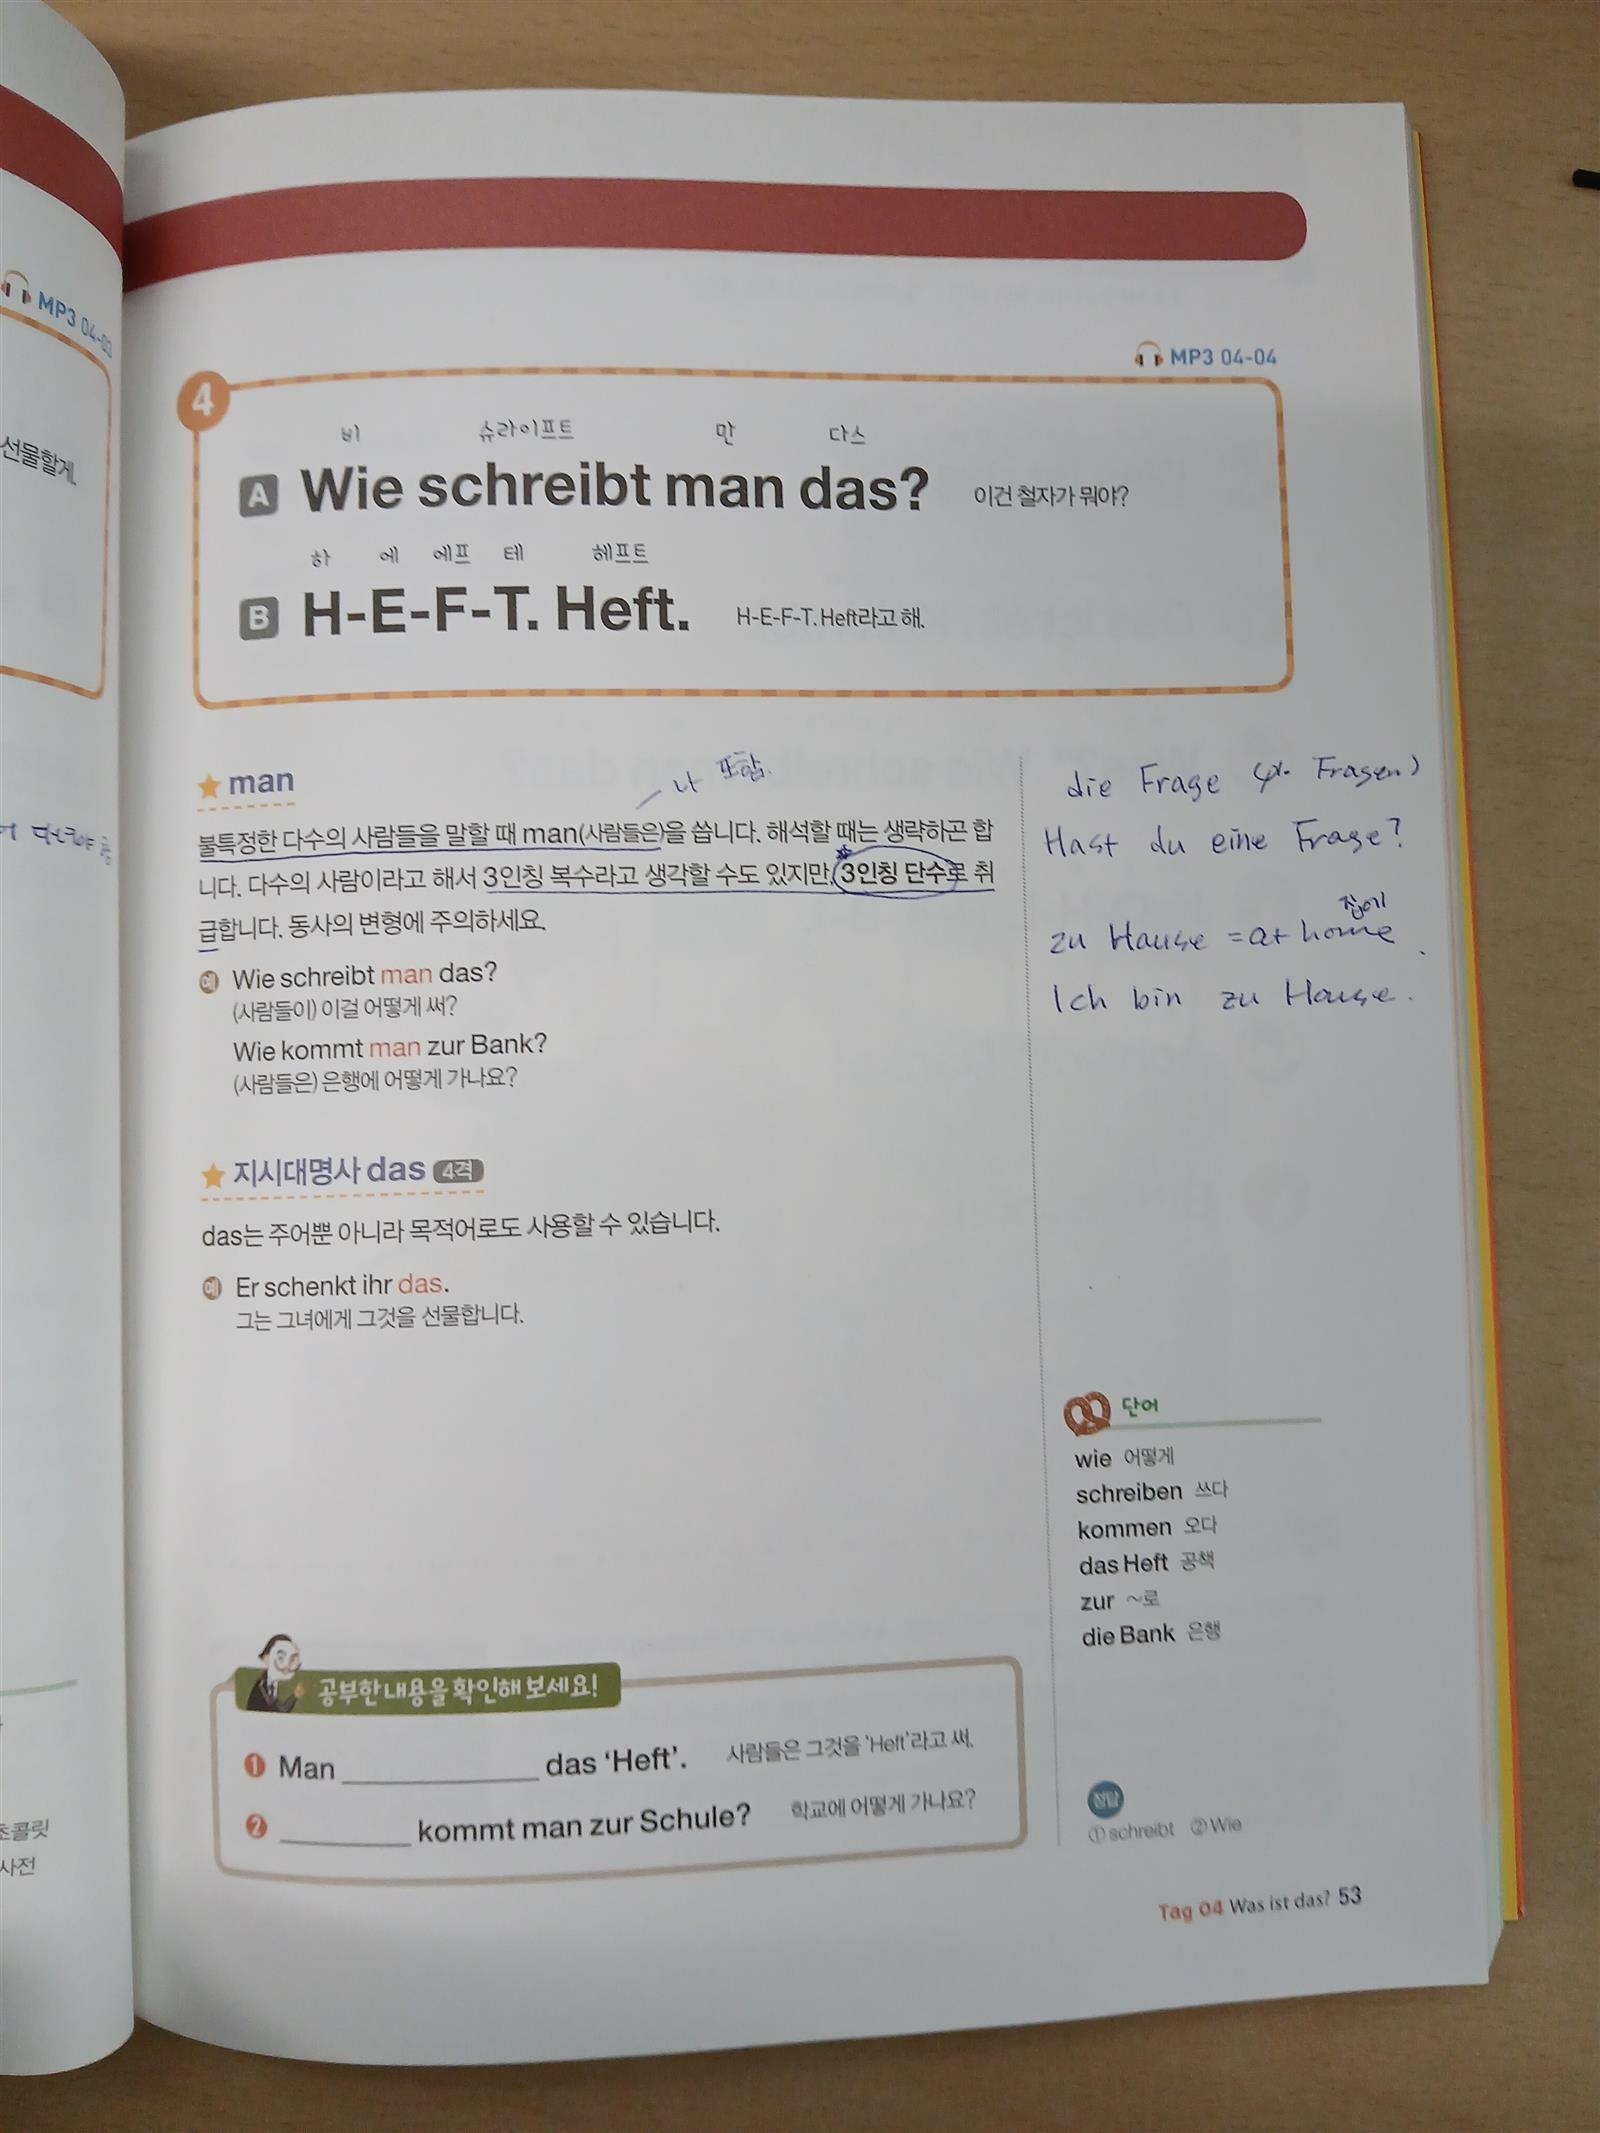 MP3 04-03
선물할게.
초콜릿
사전
MP3 04-04
4
비 슈라이프트 만 다스
A Wie schreibt man das? 이건 철자가 뭐야?
하 에 에프 테 헤프트
B H-E-F-T. Heft. H-E-F-T. Heft라고 해.
man
나 포함.
불특정한 다수의 사람들을 말할 때 man(사람들은)을 씁니다. 해석할 때는 생략하곤 합
니다. 다수의 사람이라고 해서 3인칭 복수라고 생각할 수도 있지만, 3인칭 단수로 취
급합니다. 동사의 변형에 주의하세요.
예 Wie schreibt man das?
(사람들이) 이걸 어떻게 써?
Wie kommt man zur Bank?
(사람들은) 은행에 어떻게 가나요?
지시대명사 das 4격
das는 주어뿐 아니라 목적어로도 사용할 수 있습니다.
예 Er schenkt ihr das.
그는 그녀에게 그것을 선물합니다.
die Frage (pl. Fragen)
Hast du eine Frage?
집에
zu Hause = at home
Ich bin zu Hause.
단어
wie 어떻게
schreiben 쓰다
kommen 오다
das Heft 공책
zur ~로
die Bank 은행
공부한 내용을 확인해 보세요!
1 Man ____________ das ‘Heft’. 사람들은 그것을 ‘Heft’라고 써.
2 ________ kommt man zur Schule? 학교에 어떻게 가나요?
정답
① schreibt ② Wie
Tag 04 Was ist das? 53